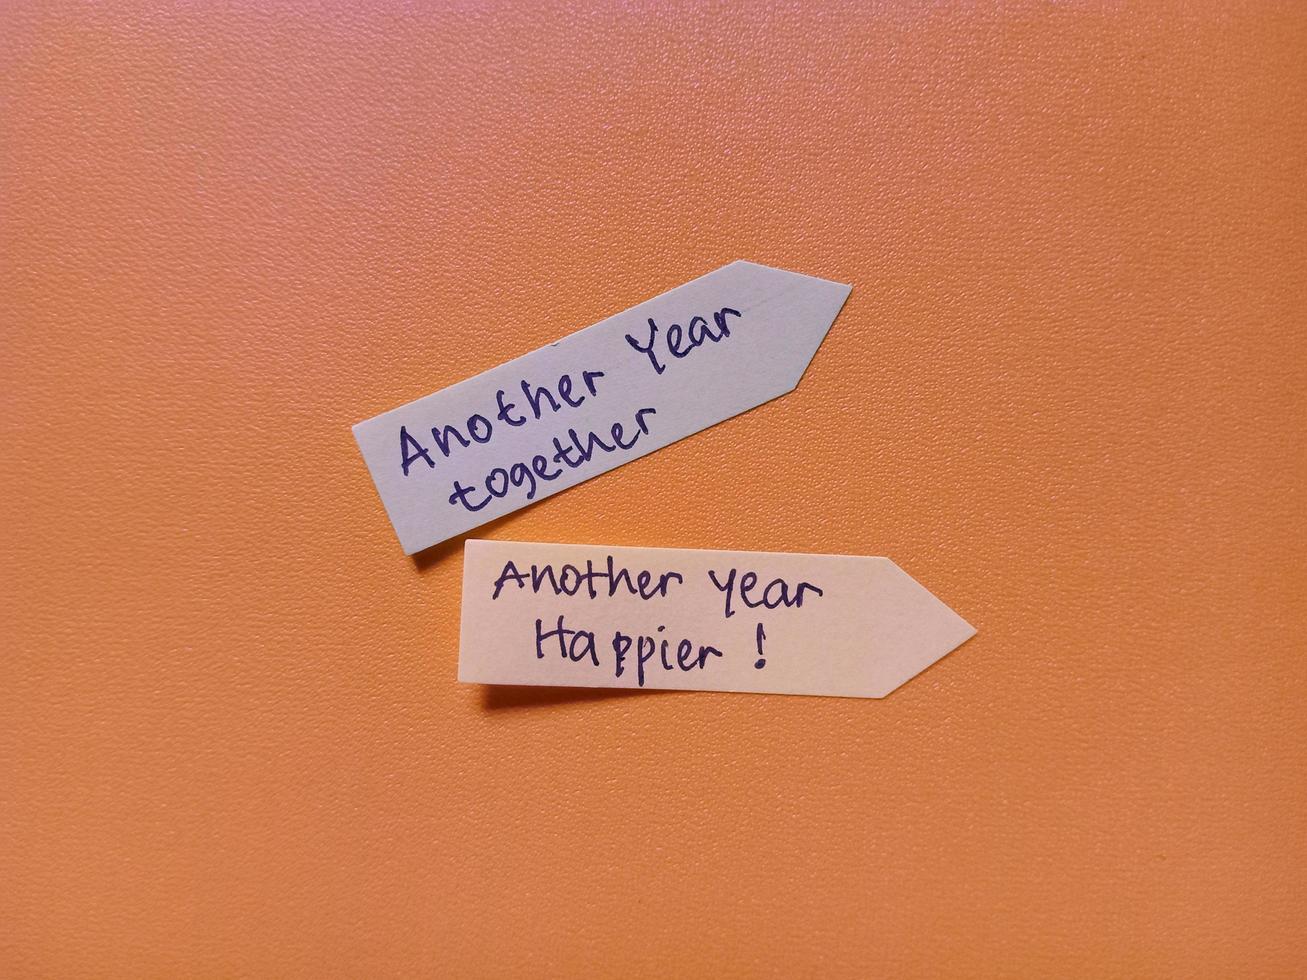 Another Year
together
Another year
Happier !